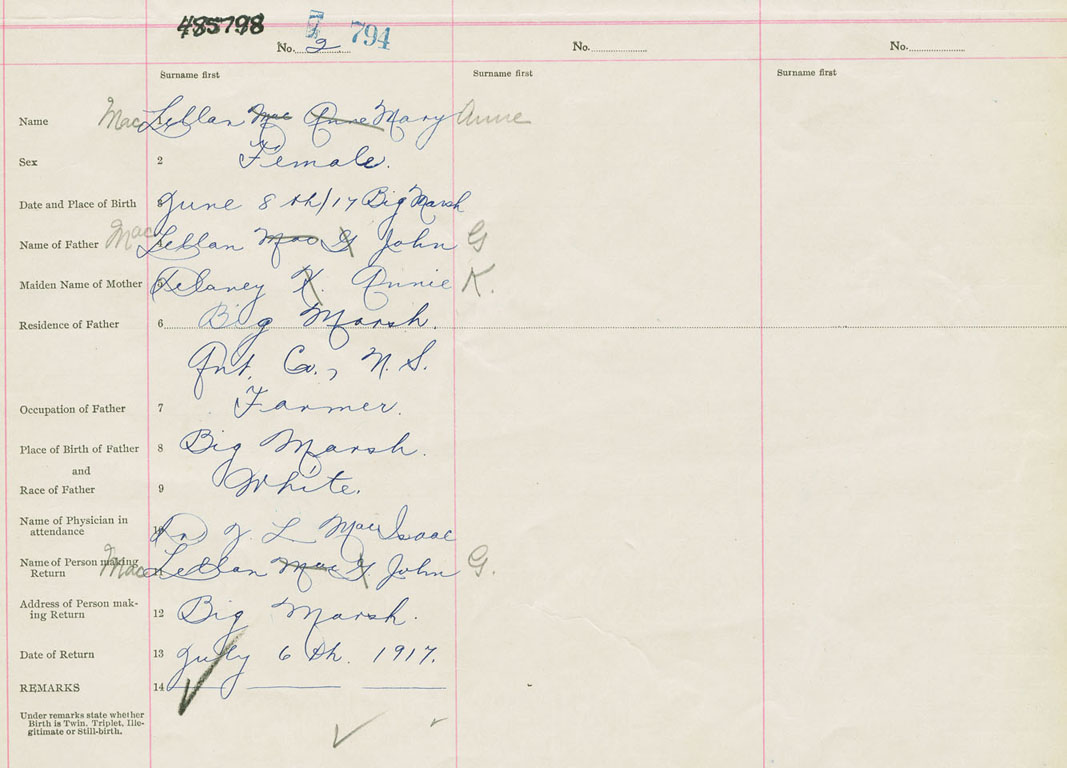 485798
No. 2 794 No. No.
Surname first Surname first Surname first
Name Mac Lellan Mac Anne Mary Anne
Sex 2 Female.
Date and Place of Birth 3 June 8th/17 Big Marsh
Name of Father Mac Lellan Mac G John G
Maiden Name of Mother 5 Delaney K. Annie K.
Residence of Father 6 Big Marsh.
Ant. Co., N. S.
Occupation of Father 7 Farmer.
Place of Birth of Father 8 Big Marsh.
and
Race of Father 9 White.
Name of Physician in
attendance Dr J L MacIsaac
Name of Person making
Return Mac Lellan Mac G John G.
Address of Person mak-
ing Return 12 Big Marsh.
Date of Return 13 July 6th. 1917.
REMARKS 14
Under remarks state whether
Birth is Twin, Triplet, Ille-
gitimate or Still-birth.